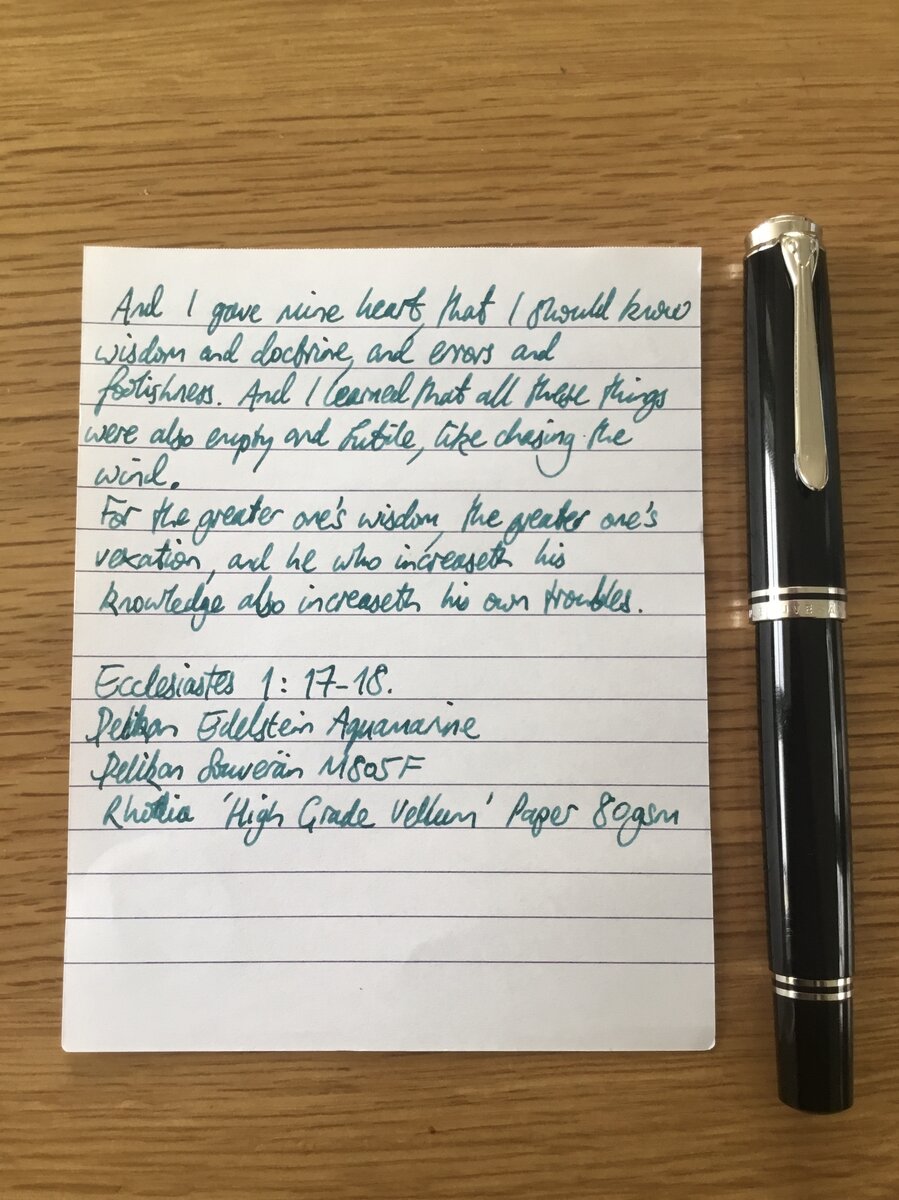 And I gave mine heart, that I should know
wisdom and doctrine, and errors and
foolishness. And I learned that all these things
were also empty and futile, like chasing the
wind.
For the greater one's wisdom, the greater one's
vexation, and he who increaseth his
knowledge also increaseth his own troubles.
Ecclesiastes 1: 17-18.
Pelikan Edelstein Aquamarine
Pelikan Souverän M805F
Rhodia 'High Grade Vellum' Paper 80gsm